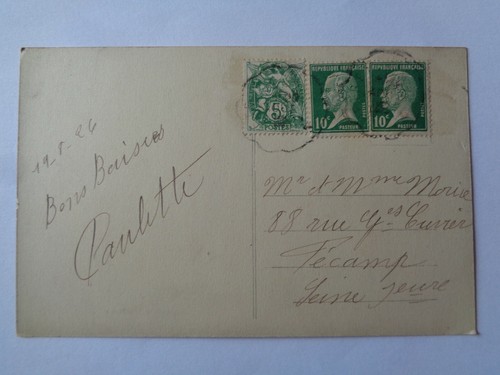 19.8.26
Bons Baisers
Paulette
5c
POSTES
REPUBLIQUE FRANÇAISE
10c
PASTEUR
REPUBLIQUE FRANÇAISE
10c
PASTEUR
Mr et Mme Morice
88 rue Gges Cuvier
Fécamp
Seine Infeure